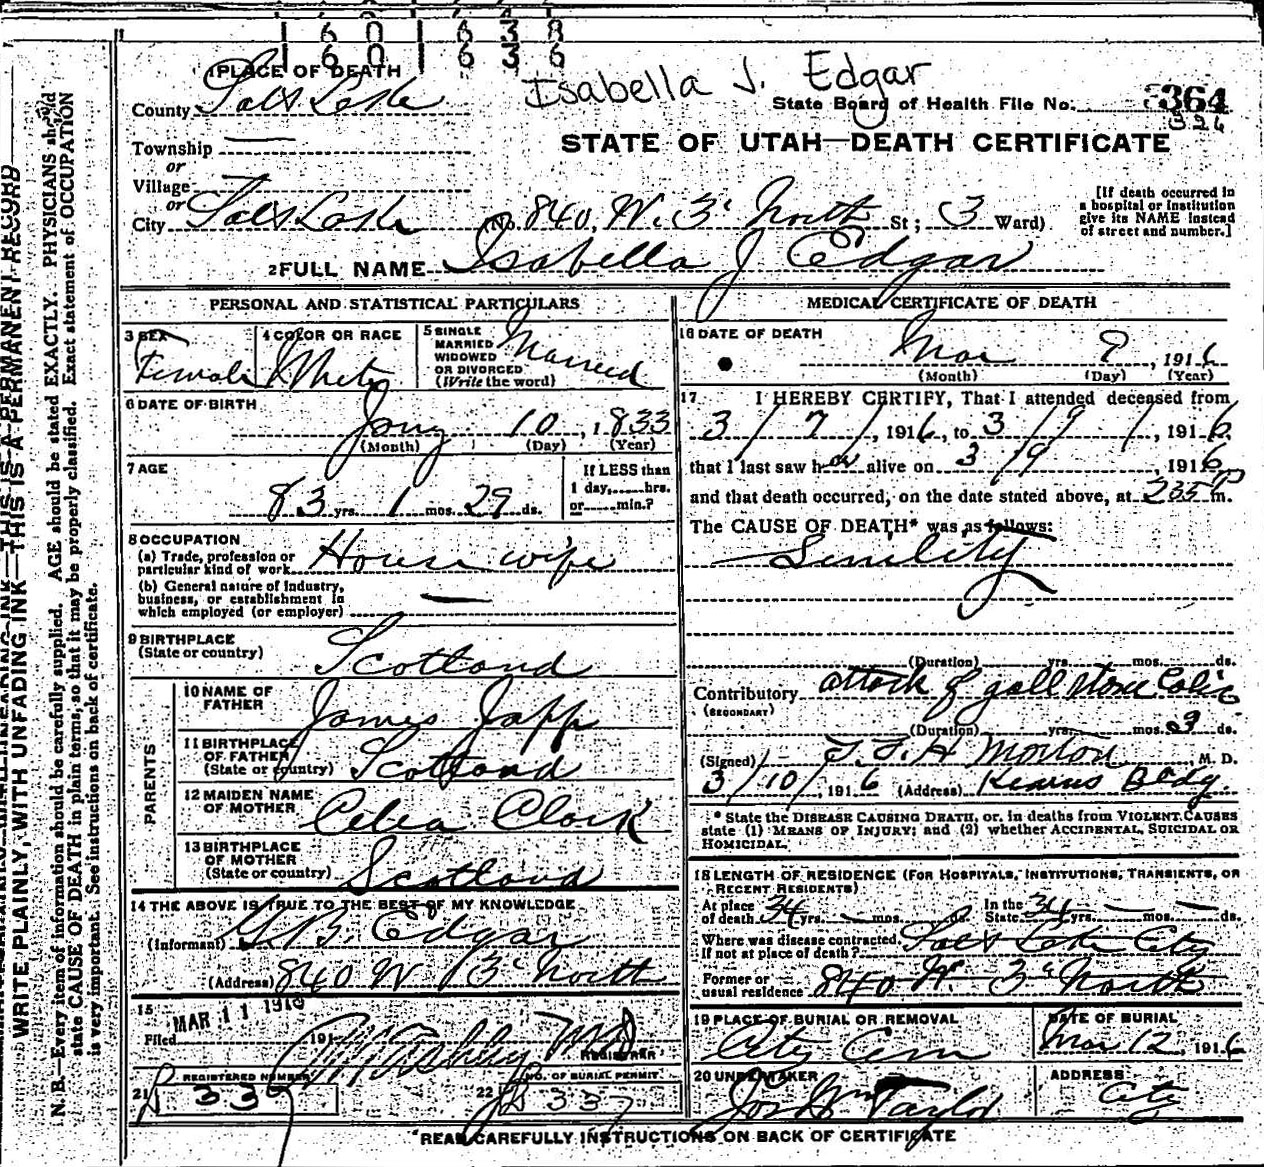 1 6 0 1 6 3 8
1 6 0 1 6 3 6
1 PLACE OF DEATH
Isabella J. Edgar
County Salt Lake
State Board of Health File No. 364
Township —
STATE OF UTAH—DEATH CERTIFICATE
or
Village
or
City Salt Lake (No. 840, W. 3d North St; 3 Ward)
[If death occurred in
a hospital or institution
give its NAME instead
of street and number.]
2 FULL NAME Isabella J Edgar
PERSONAL AND STATISTICAL PARTICULARS
3 SEX Female
4 COLOR OR RACE White
5 SINGLE
MARRIED
WIDOWED
OR DIVORCED
(Write the word) Married
6 DATE OF BIRTH
Jany 10, 1833
(Month) (Day) (Year)
7 AGE
83 yrs. 1 mos. 29 ds.
If LESS than
1 day, hrs.
or min.?
8 OCCUPATION
(a) Trade, profession or
particular kind of work House wife
(b) General nature of industry,
business, or establishment in
which employed (or employer) —
9 BIRTHPLACE
(State or country) Scotland
PARENTS
10 NAME OF
FATHER James Japp
11 BIRTHPLACE
OF FATHER
(State or country) Scotland
12 MAIDEN NAME
OF MOTHER Clark
13 BIRTHPLACE
OF MOTHER
(State or country) Scotland
14 THE ABOVE IS TRUE TO THE BEST OF MY KNOWLEDGE
(Informant) B. Edgar
(Address) 840 W 3d North
15
Filed MAR 11 191
REGISTRAR
REGISTERED NUMBER
21
22
NO. OF BURIAL PERMIT
MEDICAL CERTIFICATE OF DEATH
16 DATE OF DEATH
Mar 9, 1916
(Month) (Day) (Year)
17 I HEREBY CERTIFY, That I attended deceased from
3/7/, 1916, to 3/9/, 1916,
that I last saw her alive on 3/9, 1916,
and that death occurred, on the date stated above, at 235 P m.
The CAUSE OF DEATH* was as follows:
Senility
(Duration) yrs. mos. ds.
Contributory attack of gall stone Colic
(SECONDARY)
(Duration) yrs. mos. 3 ds.
(Signed) H Morton, M. D.
3/10/, 1916 (Address) Kearns Bldg.
* State the DISEASE CAUSING DEATH, or, in deaths from VIOLENT CAUSES
state (1) MEANS OF INJURY; and (2) whether ACCIDENTAL, SUICIDAL OR
HOMICIDAL.
18 LENGTH OF RESIDENCE (FOR HOSPITALS, INSTITUTIONS, TRANSIENTS, OR
RECENT RESIDENTS)
At place
of death 34 yrs. — mos. ds.
In the
State 34 yrs. — mos. — ds.
Where was disease contracted,
If not at place of death? Salt Lake City
Former or
usual residence 840 W. 3d North
19 PLACE OF BURIAL OR REMOVAL
City Cem
DATE OF BURIAL
Mar 12, 1916
20 UNDERTAKER
Jos Wm Taylor
ADDRESS
City
*READ CAREFULLY INSTRUCTIONS ON BACK OF CERTIFICATE
WRITE PLAINLY, WITH UNFADING INK—THIS IS A PERMANENT RECORD
N. B.—Every item of information should be carefully supplied. AGE should be stated EXACTLY. PHYSICIANS should
state CAUSE OF DEATH in plain terms, so that it may be properly classified. Exact statement of OCCUPATION
is very important. See instructions on back of certificate.